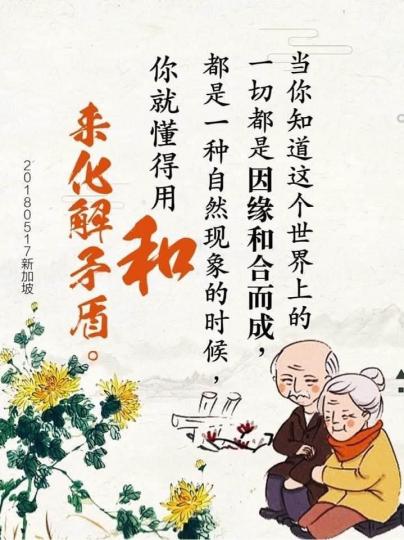 当你知道这个世界上的
一切都是因缘和合而成，
都是一种自然现象的时候，
你就懂得用
和
来化解矛盾。
20180517新加坡